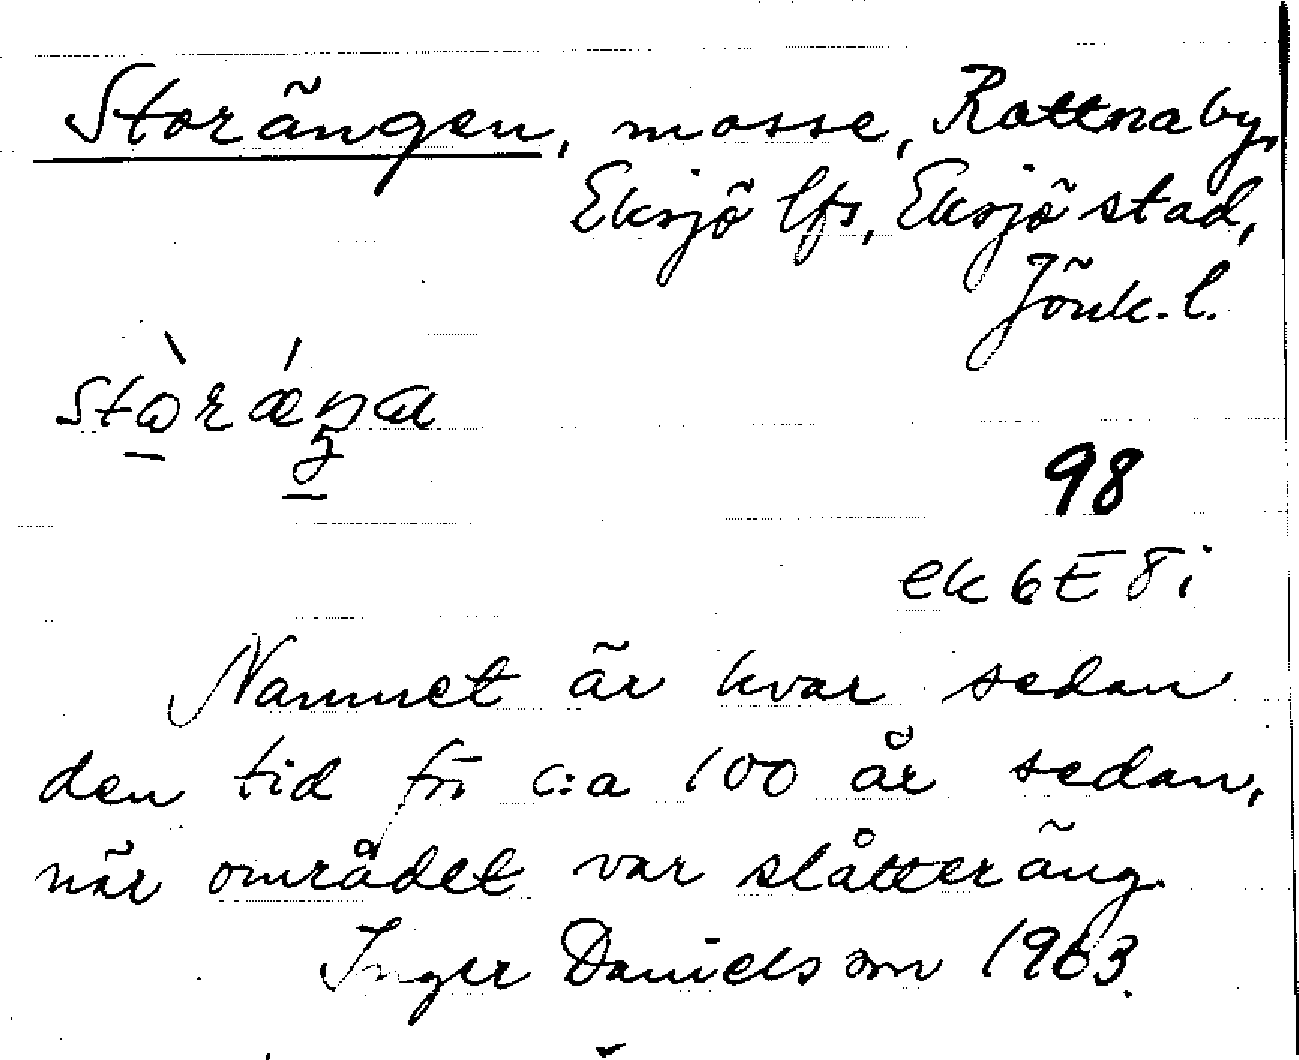 Storängen, mosse, Rattnaby,
Eksjö lfs, Eksjö stad,
Jönk. l.
98
ek 6E 8i
Namnet är kvar sedan
den tid för c:a 100 år sedan,
när området var slåtteräng.
Inger Danielsson 1963.